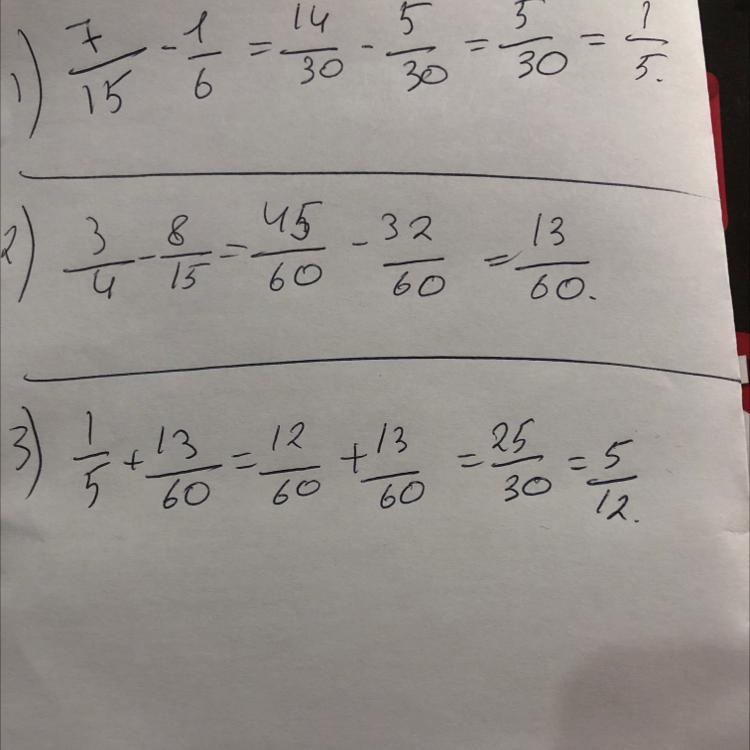 1) 7/15 - 1/6 = 14/30 - 5/30 = 5/30 = 1/5.
2) 3/4 - 8/15 = 45/60 - 32/60 = 13/60.
3) 1/5 + 13/60 = 12/60 + 13/60 = 25/30 = 5/12.